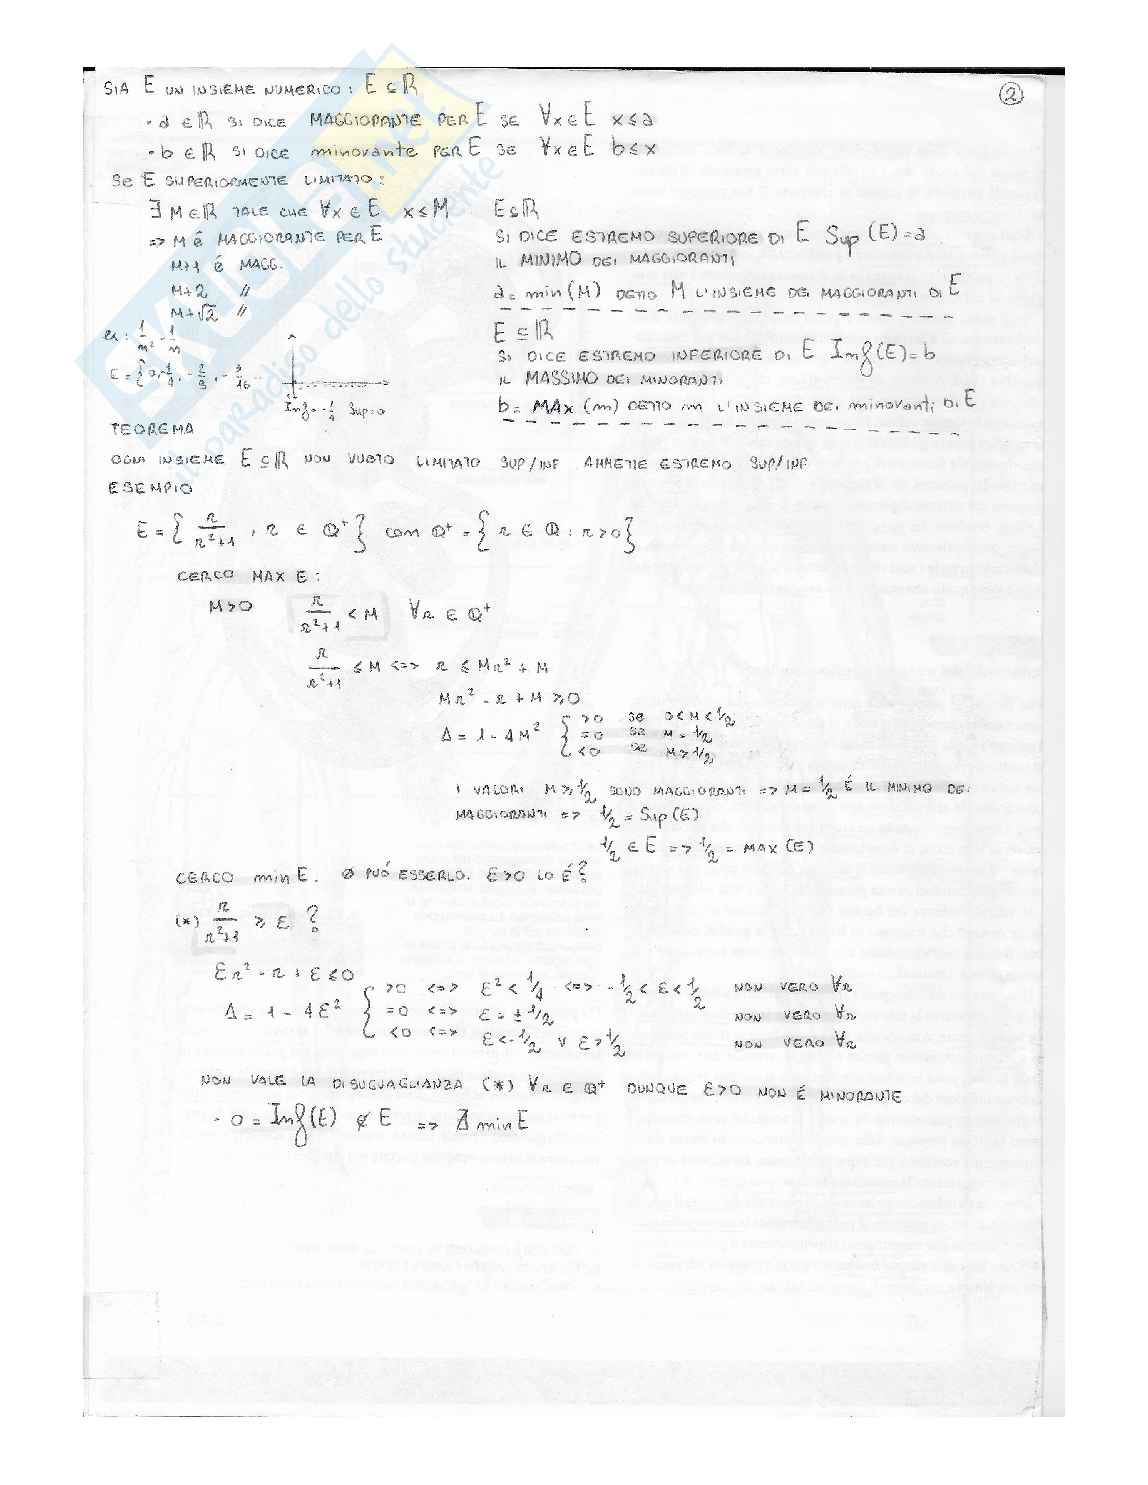 ②
SIA E UN INSIEME NUMERICO: E ⊆ ℝ
· a ∈ ℝ SI DICE MAGGIORANTE PER E SE ∀x ∈ E x ≤ a
· b ∈ ℝ SI DICE minorante PER E SE ∀x ∈ E b ≤ x
Se E SUPERIORMENTE LIMITATO:
∃ M ∈ ℝ TALE CHE ∀x ∈ E x ≤ M
=> M é MAGGIORANTE PER E
M+1 é MAGG.
M+2 //
M+√2 //
E ⊆ ℝ
SI DICE ESTREMO SUPERIORE DI E Sup (E) = a
IL MINIMO DEI MAGGIORANTI
a = min (M) DETTO M L'INSIEME DEI MAGGIORANTI DI E
E ⊆ ℝ
SI DICE ESTREMO INFERIORE DI E Inf (E) = b
IL MASSIMO DEI MINORANTI
b = MAX (m) DETTO m L'INSIEME DEI minoranti DI E
ex: 1/m² - 1/m
E = {0, -1/4, -2/9, -3/16 ...
Inf = -1/4 Sup = 0
TEOREMA
OGNI INSIEME E ⊆ ℝ NON VUOTO LIMITATO SUP/INF AMMETTE ESTREMO SUP/INF
ESEMPIO
E = { r/(r²+1) , r ∈ ℚ⁺ } con ℚ⁺ = { r ∈ ℚ : r > 0 }
CERCO MAX E :
M > 0 r/(r²+1) < M ∀r ∈ ℚ⁺
r/(r²+1) ≤ M <=> r ≤ Mr² + M
Mr² - r + M ≥ 0
Δ = 1 - 4M² { > 0 se 0 < M < 1/2
= 0 se M = 1/2
< 0 se M > 1/2
I VALORI M ≥ 1/2 SONO MAGGIORANTI => M = 1/2 É IL MINIMO DEI
MAGGIORANTI => 1/2 = Sup (E)
1/2 ∈ E => 1/2 = MAX (E)
CERCO min E. Ø PUÓ ESSERLO. ε > 0 LO É?
(*) r/(r²+1) ≥ ε ?
εr² - r + ε ≤ 0
Δ = 1 - 4ε² { > 0 <=> ε² < 1/4 <=> -1/2 < ε < 1/2 NON VERO ∀r
= 0 <=> ε = ± 1/2 NON VERO ∀r
< 0 <=> ε < -1/2 ∨ ε > 1/2 NON VERO ∀r
NON VALE LA DISUGUAGLIANZA (*) ∀r ∈ ℚ⁺ DUNQUE ε > 0 NON É MINORANTE
· 0 = Inf (E) ∉ E => ∄ min E
SKUOLA.net
il paradiso dello studente